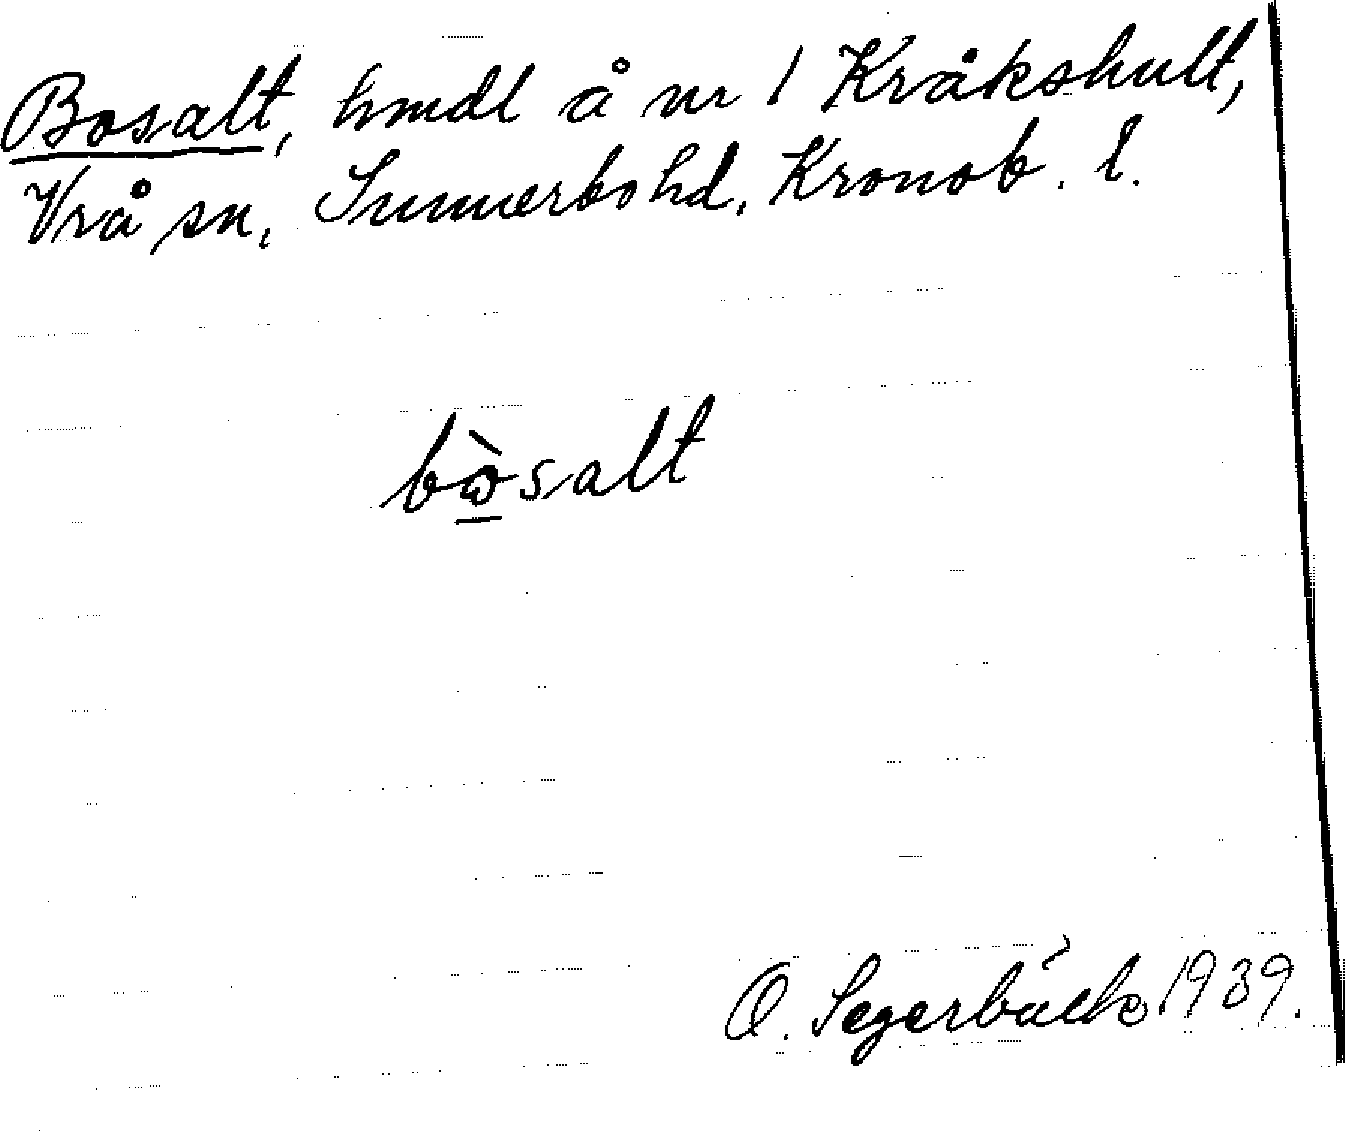 Bosalt, hmdl å nr 1 Kråkshult,
Vrå sn, Sunnerbo hd, Kronob. l.
bò̱salt
O. Segerbäck 1939.